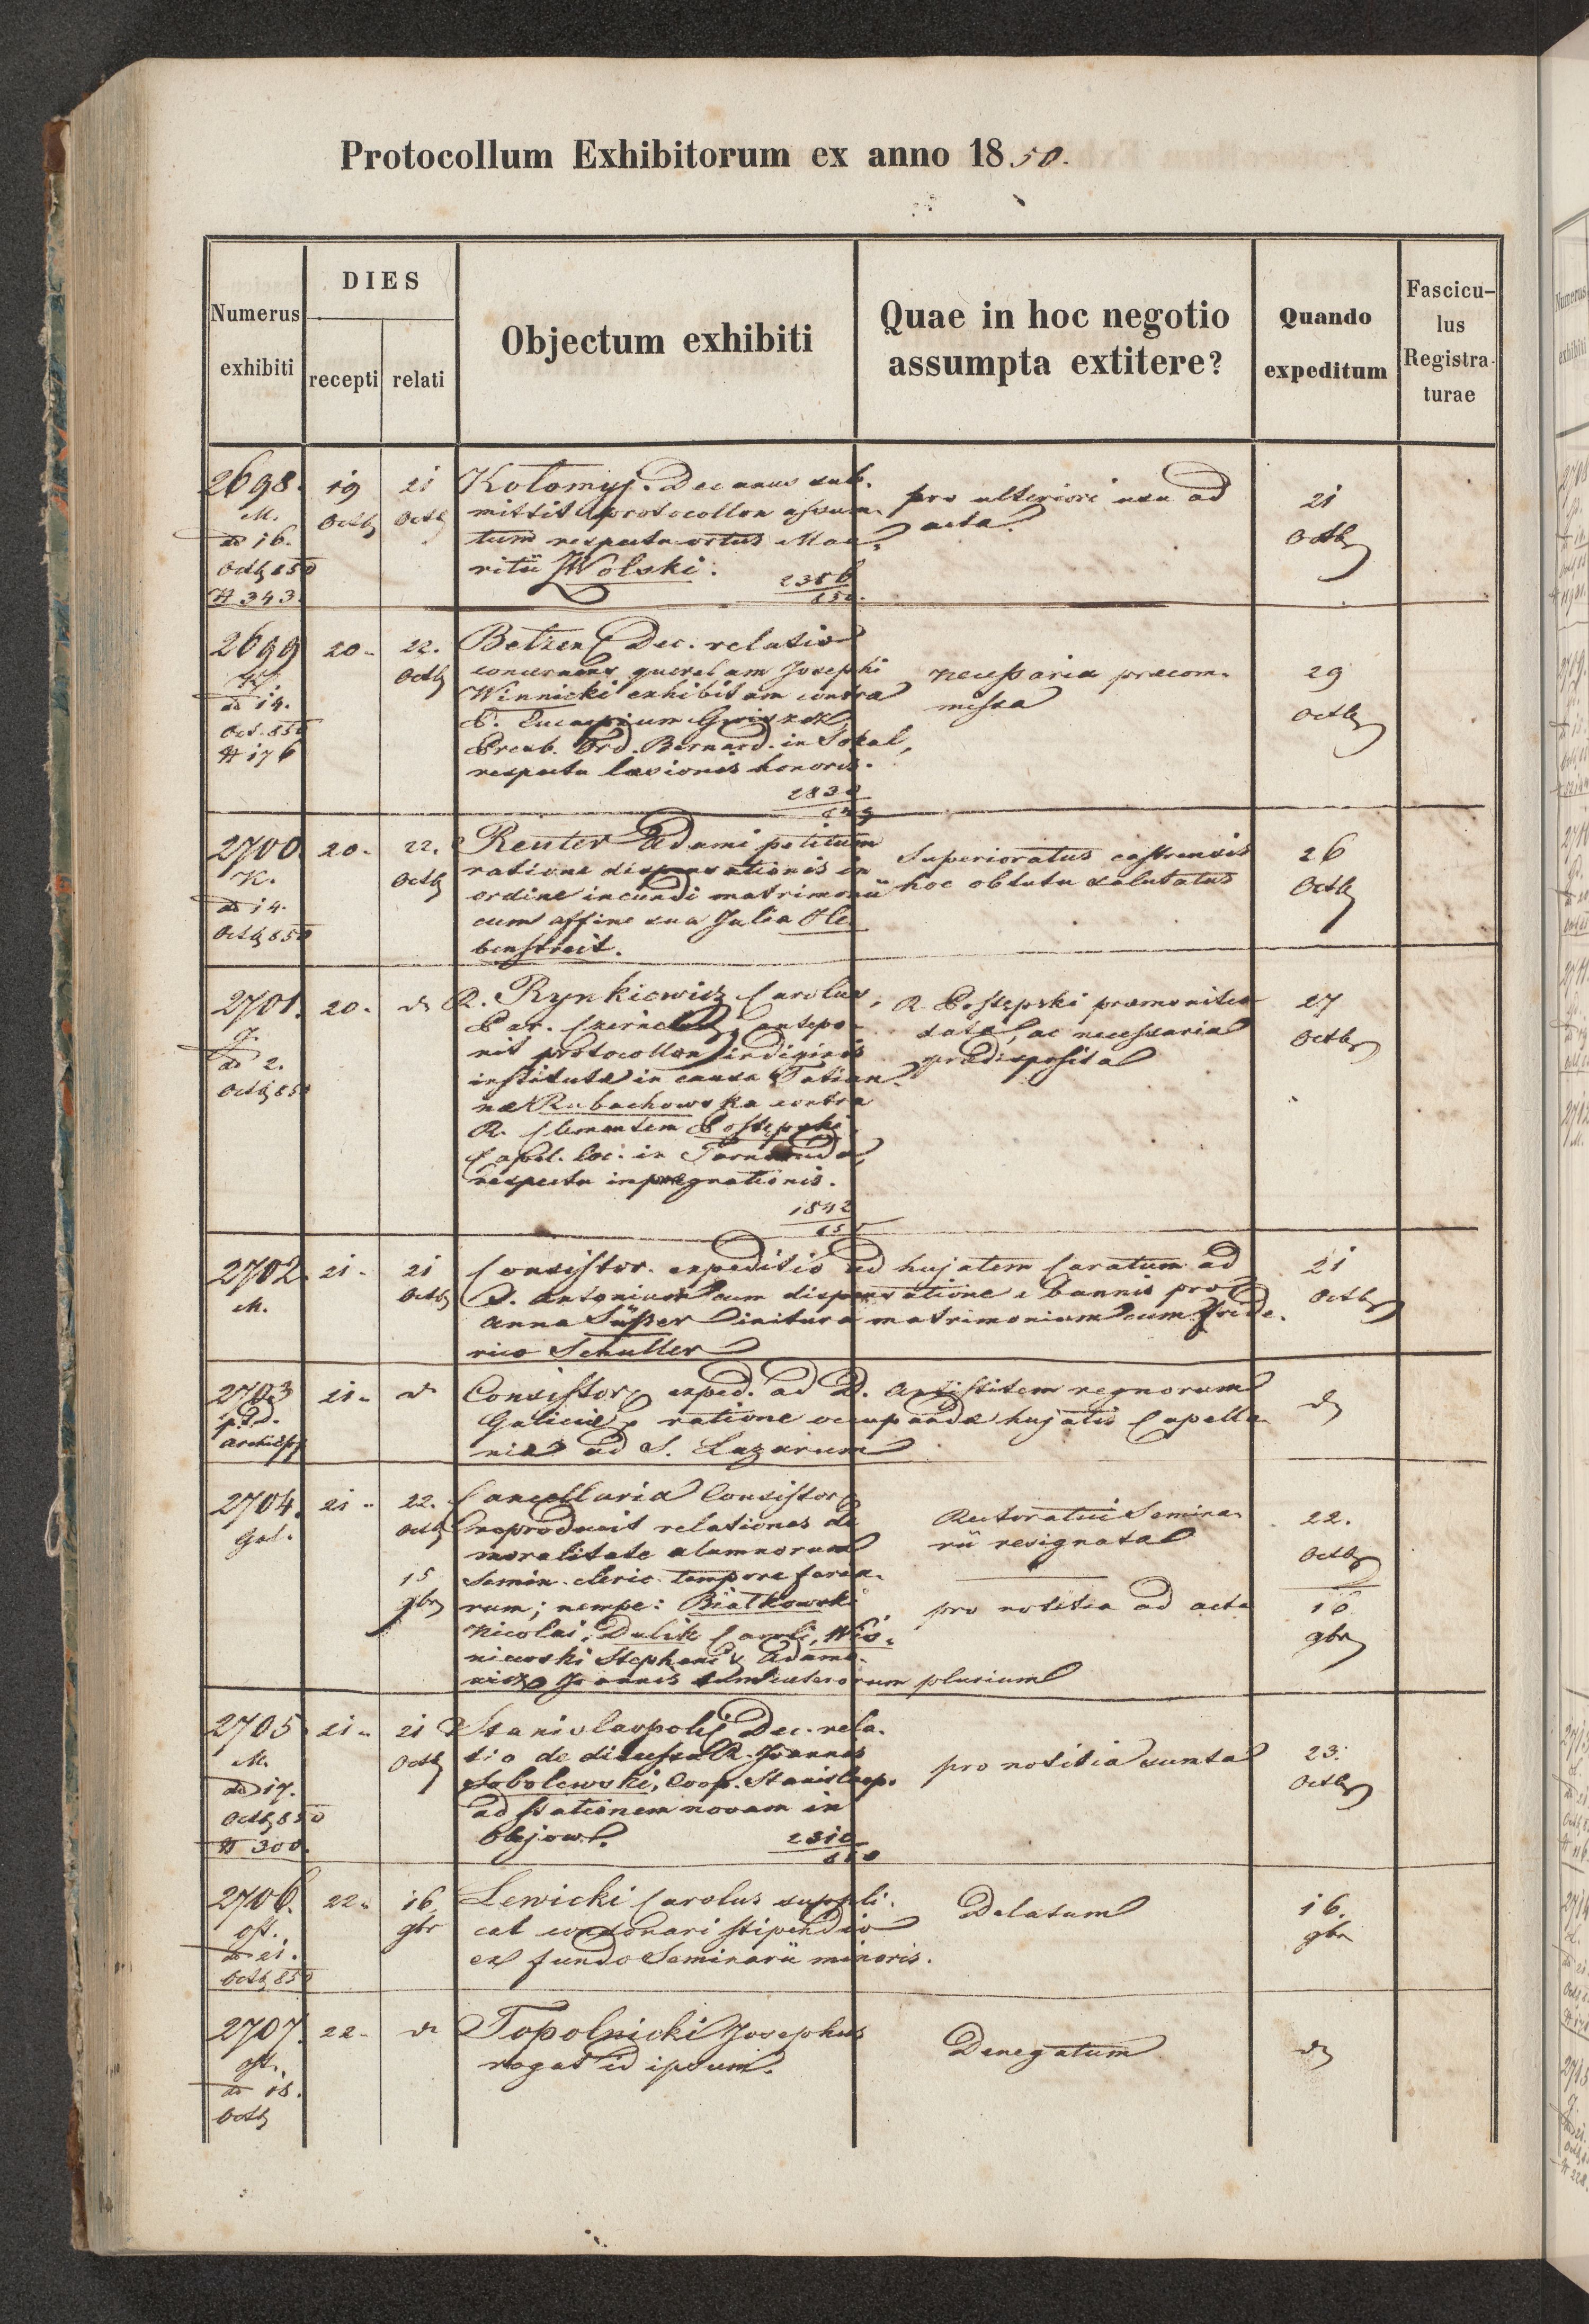 Protocollum Exhibitorum ex anno 1850.
Numerus exhibiti
DIES
recepti
relati
Objectum exhibiti
Quae in hoc negotio
assumpta extitere?
Quando
expeditum
Fascicu-
lus
Registra-
turae
2698.
M.
ad 16.
Octb 850
N 343.
19
Octb
21
Octb
Kolomyj. Decanus sub-
mittit protocollon assum-
tum respectu ortus Mau-
ritii Wolski.
2386
850.
pro ulteriori usu ad
acta.
21
Octb
2699
ad 14.
Oct. 850
N 176
20
22.
Octb
Belzen. Dec. relatio
concernens querelam Josephi
Winnicki exhibitam contra
P. Eucarpium
Presb. Ord. Bernard. in Sokal,
respectu laesionis honoris.
2830
necessaria praecom-
missa
29
Octb
2700
K.
ad 14.
Octb 850
20
22.
Octb
Reuter Adami petitum
ratione dispensationis in
ordine ineundi matrimonii
cum affine sua Julia He-
benstreit.
Superioratus castrensis
hoc obtutu salutatus
26
Octb
2701.
J.
ad 2.
Octb 850
20.
d
R. Rynkiewicz Carolus,
Par. antepo-
nit protocollon indiginis
institutae in causa Tatian-
nae Rubachowska contra
R. Clementem Postępski
Capel. loc. in
respectu impraegnationis.
1842
850
R. Postępski praemonitus
ac necessaria
praedisposita
27
Octbr
2702.
M.
21
21
Octb
Consistor. expeditio ad hujatem Curatum ad
S. Antonium cum dispensatione a bannis pro
Anna Süsser initura matrimonium cum Frede-
rico Schuller
21
Octbr
2703
ptd.
Archiepp
21
d
Consistor. exped. ad D. Antistitem regnorum
Galiciae ratione occupandae hujatis Capella-
niae ad S. Lazarum
d
2704.
Gal.
21
22.
Octb
15
9br
Cancellaria Consistor.
reproducit relationes de
moralitate alumnorum
Semin. cleric. tempore feria-
rum; nempe: Białkowski
Nicolai, Dulik Caroli, Wis-
niewski Stephani & Adamo-
wicz Joannis plurium
Rectoratui Semina-
rii resignata
pro notitia ad acta
22.
Octbr
16
9br
2705
M.
ad 17.
Octb 850
N 300.
21
21
Octb
Stanislaopolis Dec. rela-
tio de discessu R. Joannis
Sobolewski, Coop. Stanislaop.
ad stationem novam in
2310
850
pro notitia sumta
23.
Octbr
2706.
ad 21.
Octb 850
22
16
9br
Lewicki Carolus suppli-
cat condonari stipendio
ex fundo Seminarii minoris.
Delatum
16.
9br
2707.
ad 18.
Octb
22
d
Topolnicki Josephus
rogat id ipsum.
Denegatum
d